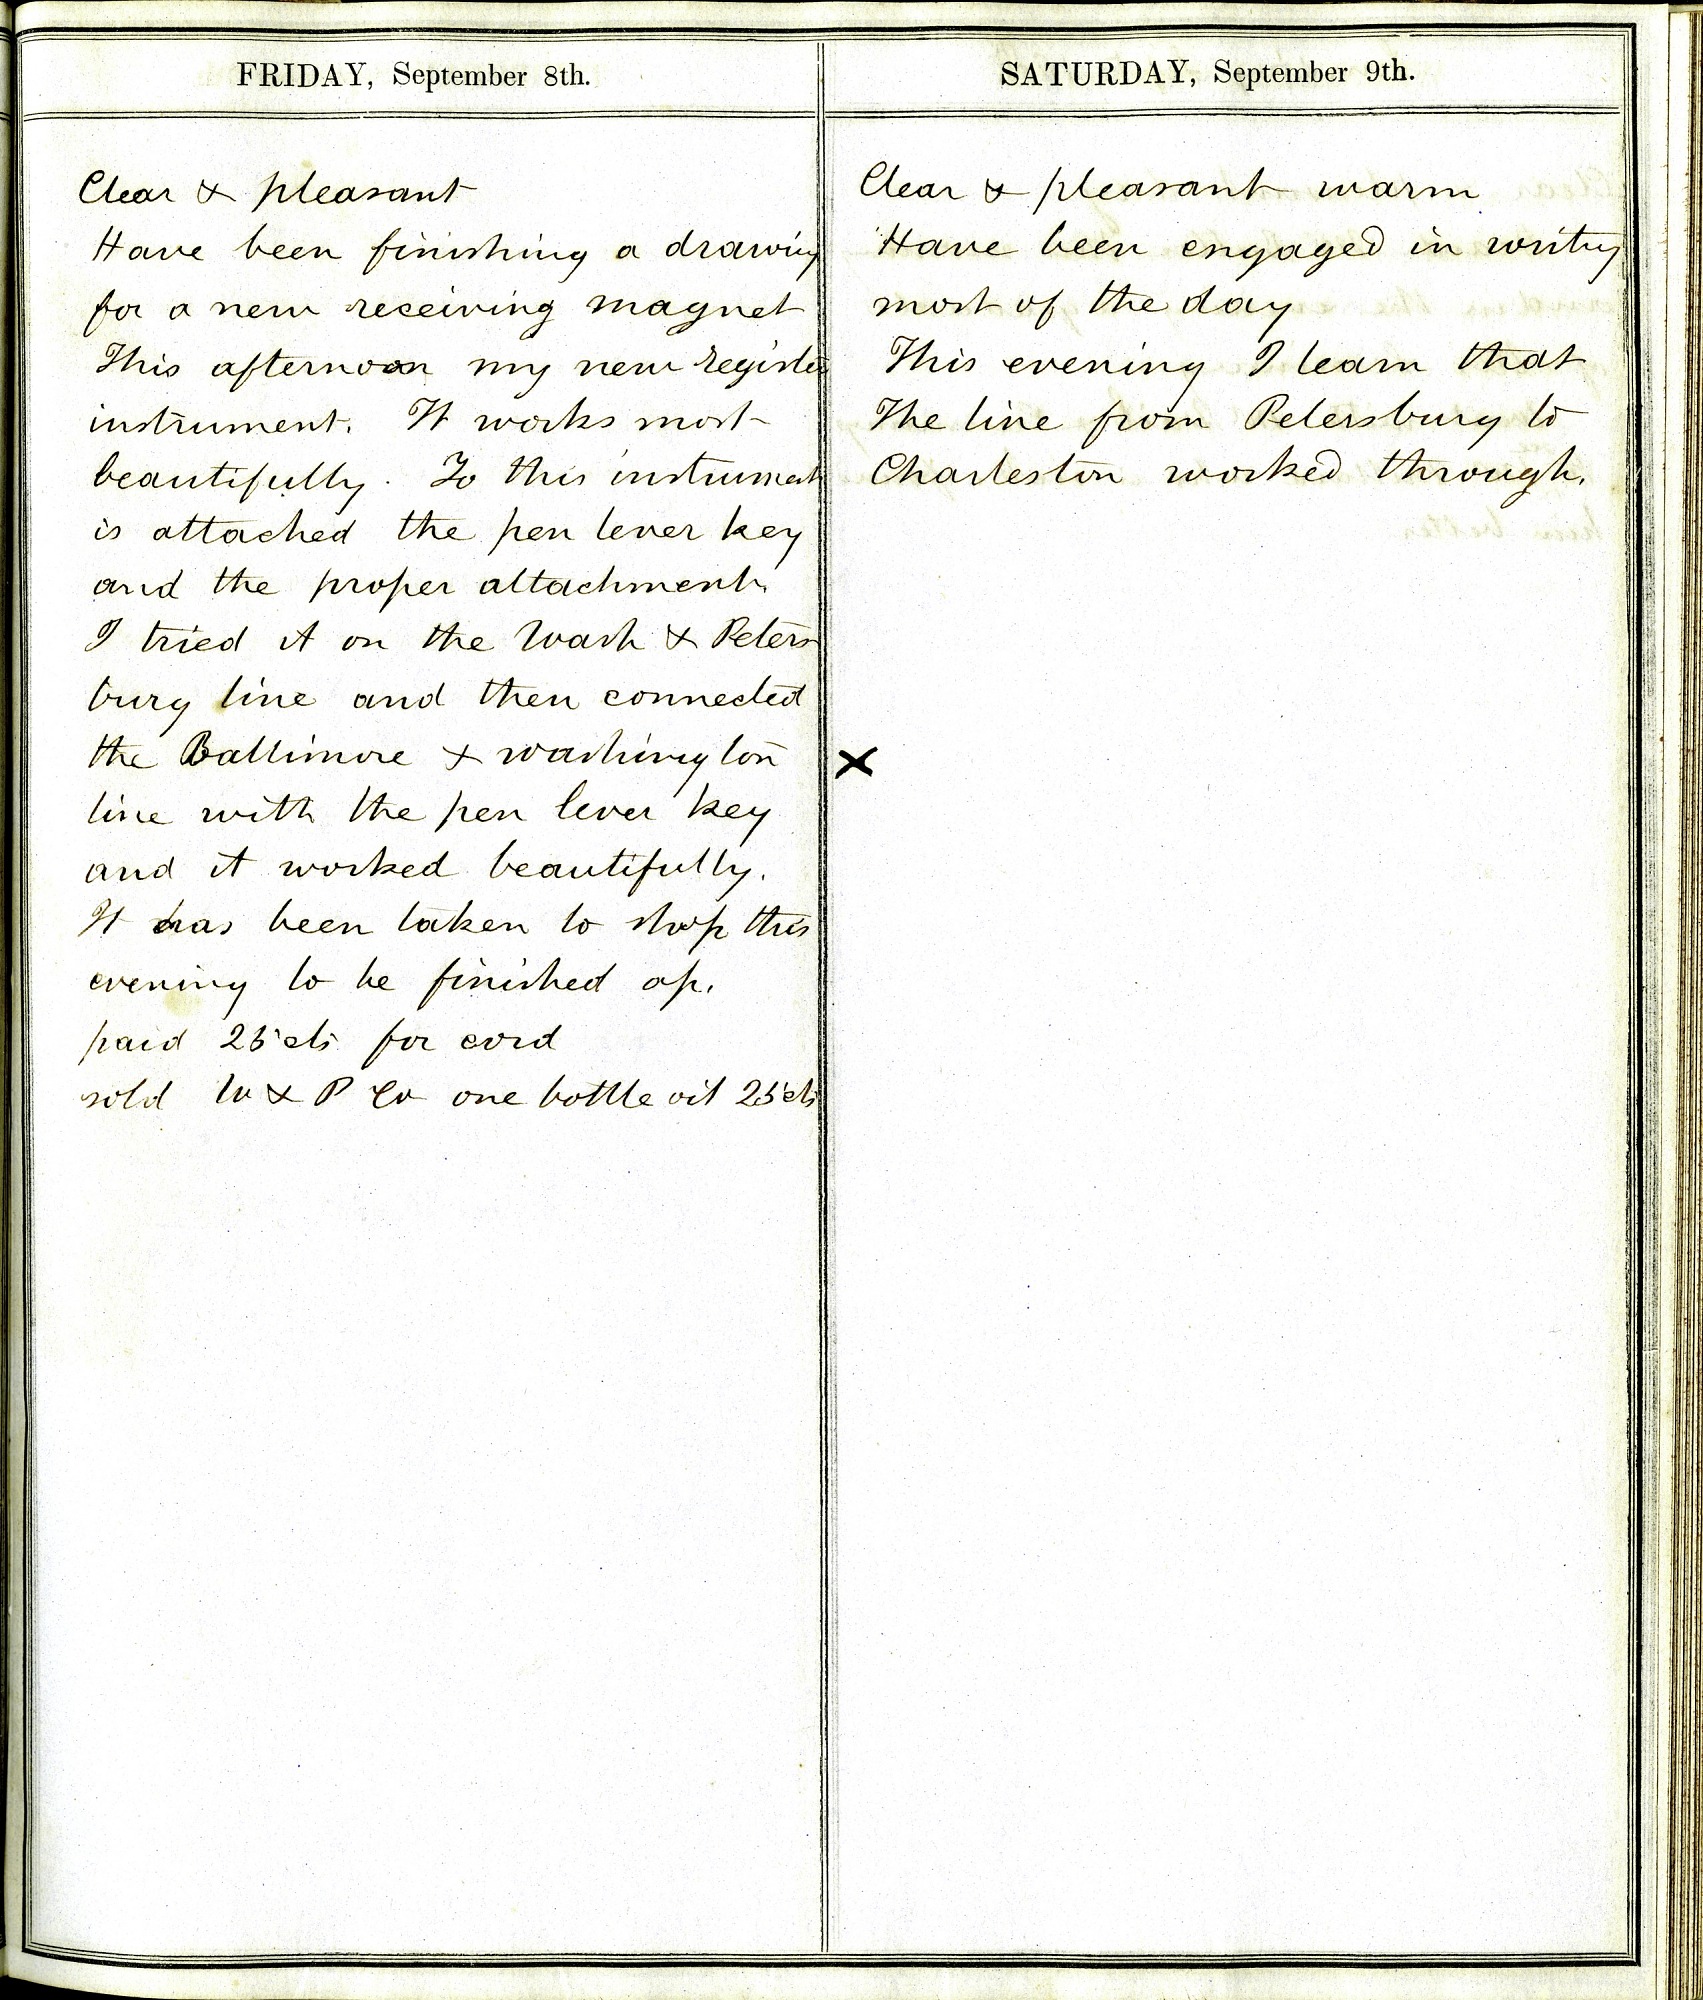 FRIDAY, September 8th.
Clear & pleasant
Have been finishing a drawing
for a new receiving magnet
This afternoon my new register
instrument. It works most
beautifully. To this instrument
is attached the pen lever key
and the proper attachments.
I tried it on the Wash & Peters
burg line and then connected
the Baltimore & washington
line with the pen lever key
and it worked beautifully.
It has been taken to shop this
evening to be finished up.
paid 25 cts for cord
sold W & P Co one bottle oil 25 cts
SATURDAY, September 9th.
Clear & pleasant warm
Have been engaged in writing
most of the day
This evening I learn that
The line from Petersburg to
Charleston worked through.
x